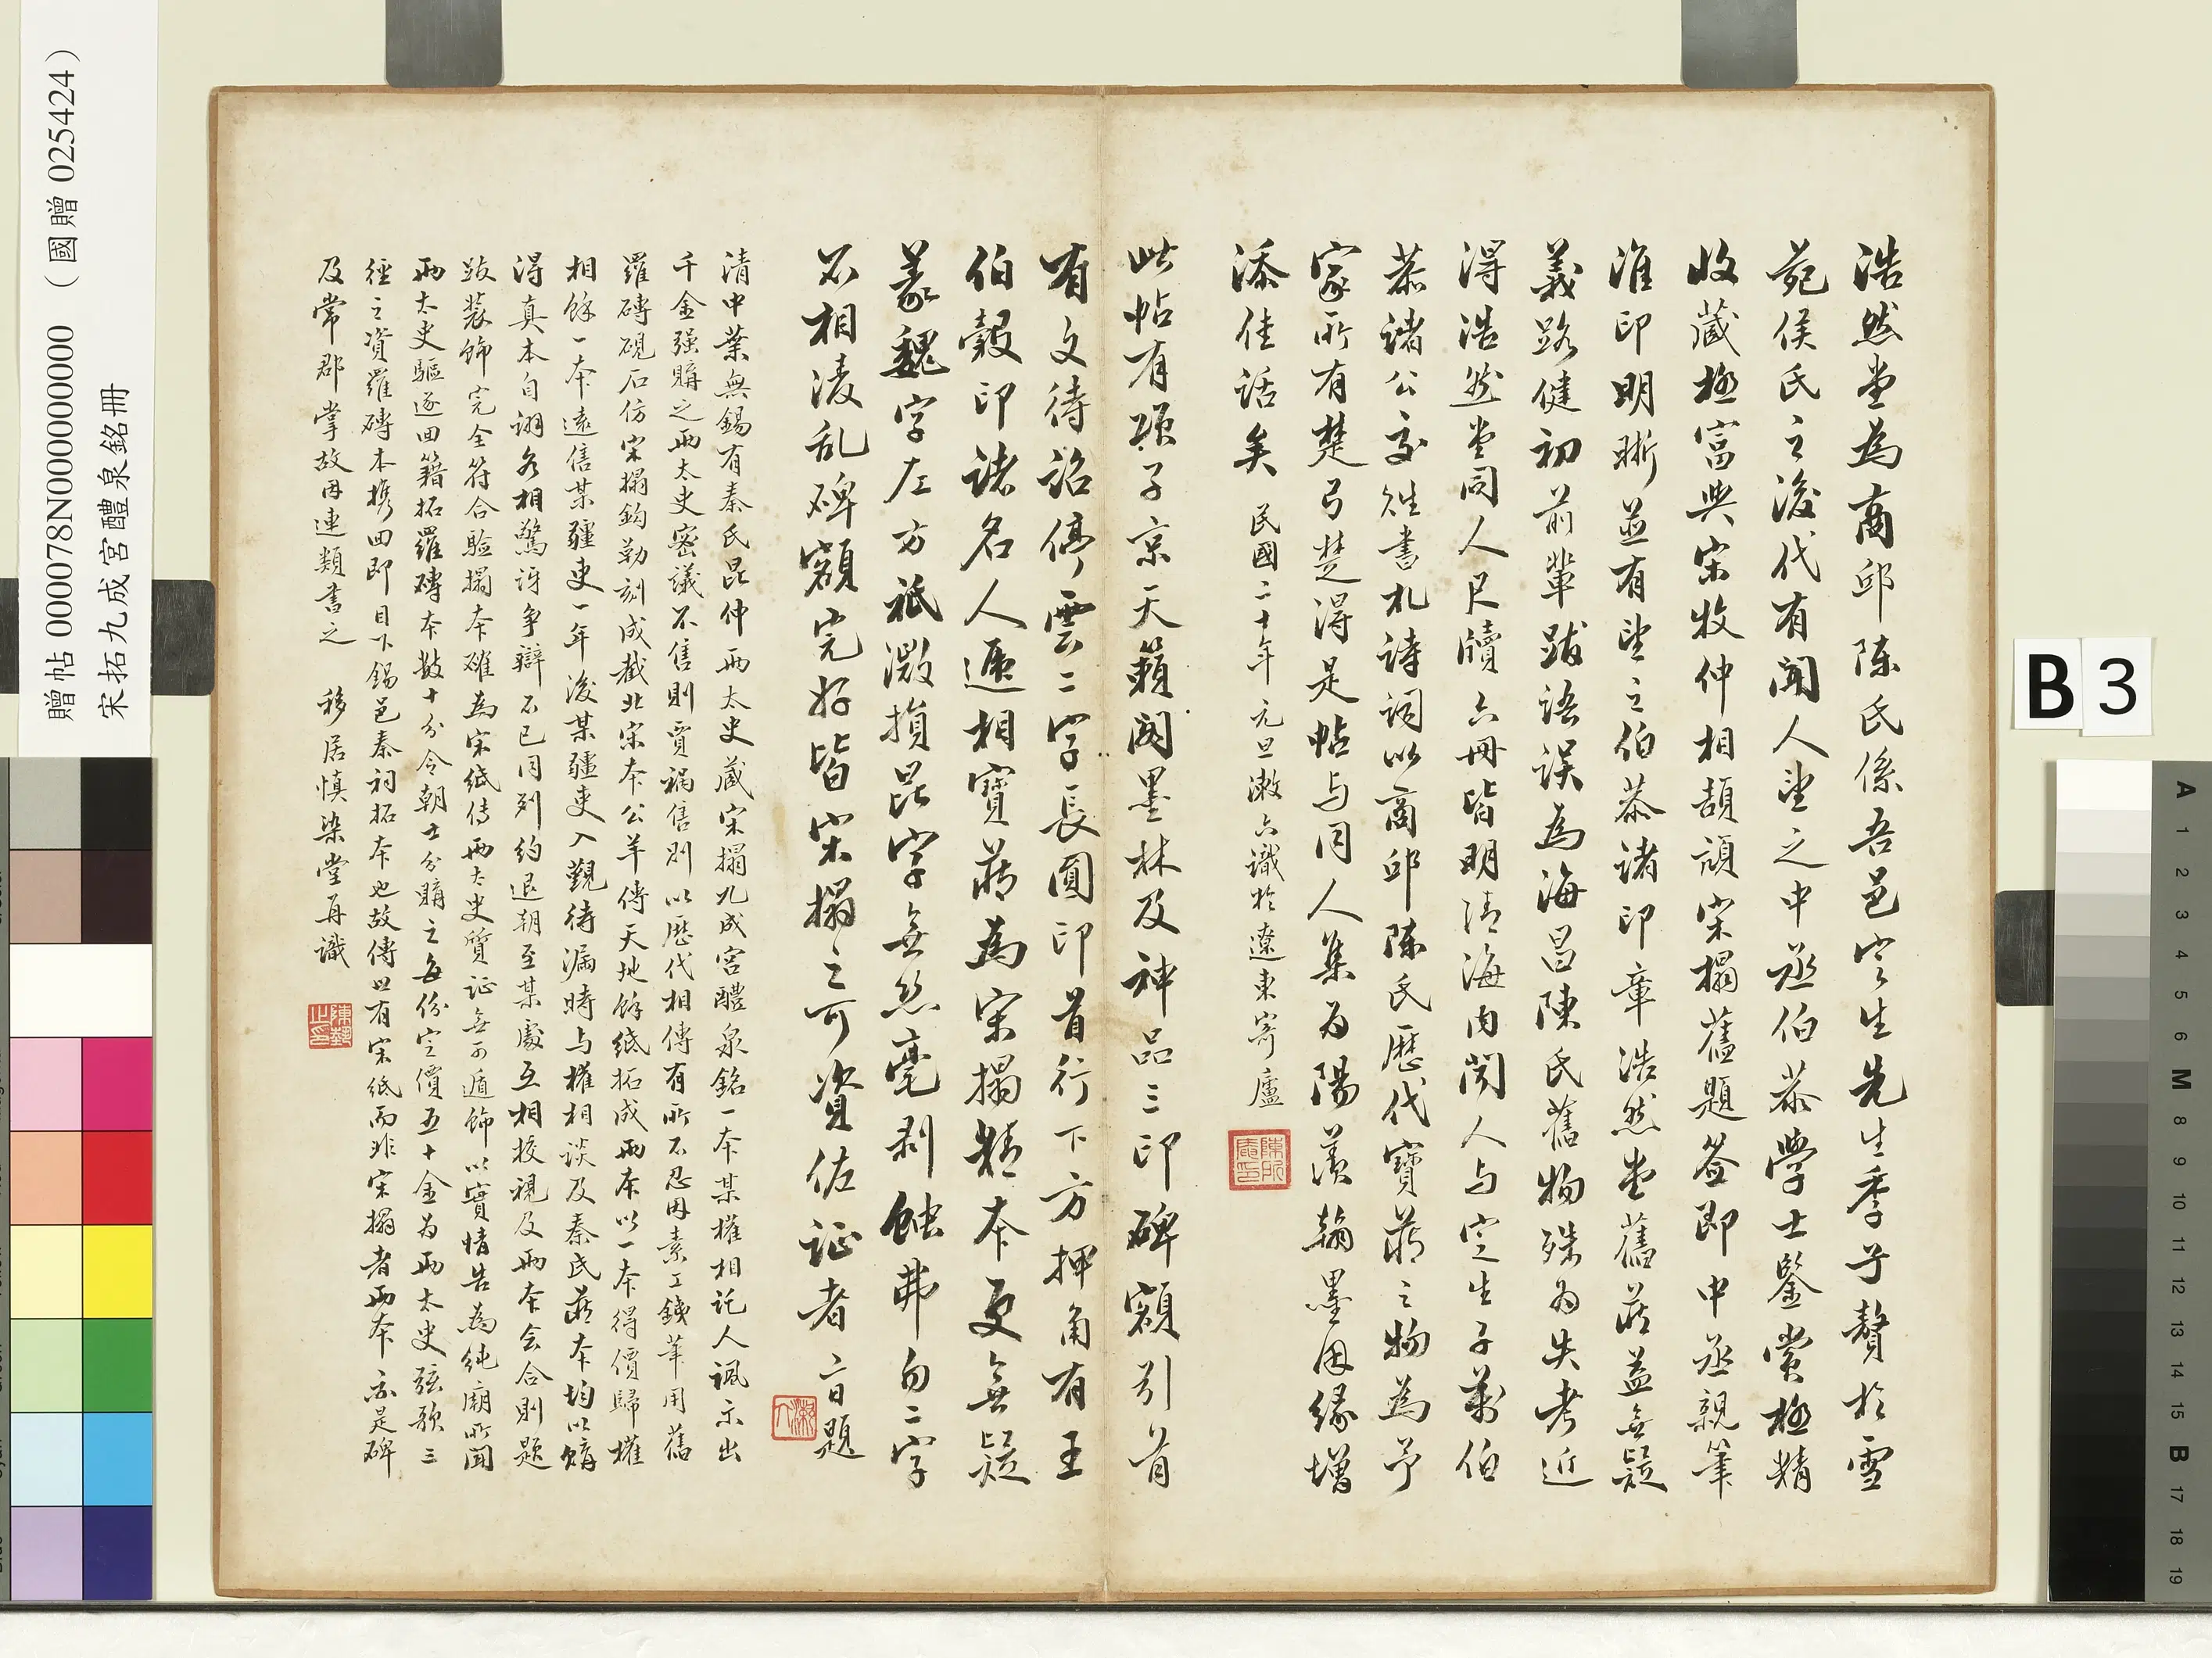 浩然堂為商邱陳氏係吾邑定生先生季子贅於雪
苑侯氏之後代有聞人望之中丞伯恭學士鑒賞極精
收藏極富與宋牧仲相頡頏宋搨舊題簽即中丞親筆
淮印明晰並有望之伯恭諸印章浩然堂舊藏益無疑
義路健初前輩跋語誤為海昌陳氏舊物殊為失考近
得浩然堂同人尺牘六冊皆明清海內聞人与定生子萬伯
恭諸公交往書札詩詞以商邱陳氏歷代寶藏之物為予
家所有楚弓楚得是帖与同人集為陽羨翰墨因緣增
添佳話矣 民國二十年元旦漱六識於遼東寄廬
此帖有項子京天籟閣墨林及神品三印碑額引首
有文待詔停雲二字長圓印首行下方押角有王
伯穀印諸名人遞相寶藏為宋搨精本更無疑
義魏字左方祇微損昆字無絲毫剥蝕弗勿二字
不相淩乱碑額完好皆宋搨之可資佐证者 六百題
清中葉無錫有秦氏昆仲兩太史藏宋搨九成宮醴泉銘一本某權相託人諷示出
千金强購之兩太史密議不售則賈禍售則以歷代相傳有所不忍因素工鐵筆用舊
羅磚硯石仿宋搨鈎勒刻成截北宋本公羊傳天地餘紙拓成兩本以一本得價歸權
相餘一本遠售某疆吏一年後某疆吏入覲待漏時与權相談及秦氏藏本均以購
得真本自詡各相驚訝争辯不已同列約退朝至某處互相校視及兩本会合則題
跋裝飾完全符合驗搨本確為宋紙傳兩太史質证無可遁飾以實情告為純廟所聞
兩太史驅逐回籍拓羅磚本數十分令朝士分購之每份定價五十金為兩太史弦歌三
徑之資羅磚本携回即目下錫邑秦祠拓本也故傳世有宋紙而非宋搨者兩本亦是碑
及常郡掌故因連類書之 移居慎染堂再識
贈帖 000078N000000000 （國贈 0254424）
宋拓九成宮醴泉銘冊
B 3
A 1 2 3 4 5 6 M 8 9 10 11 12 13 14 15 B 17 18 19